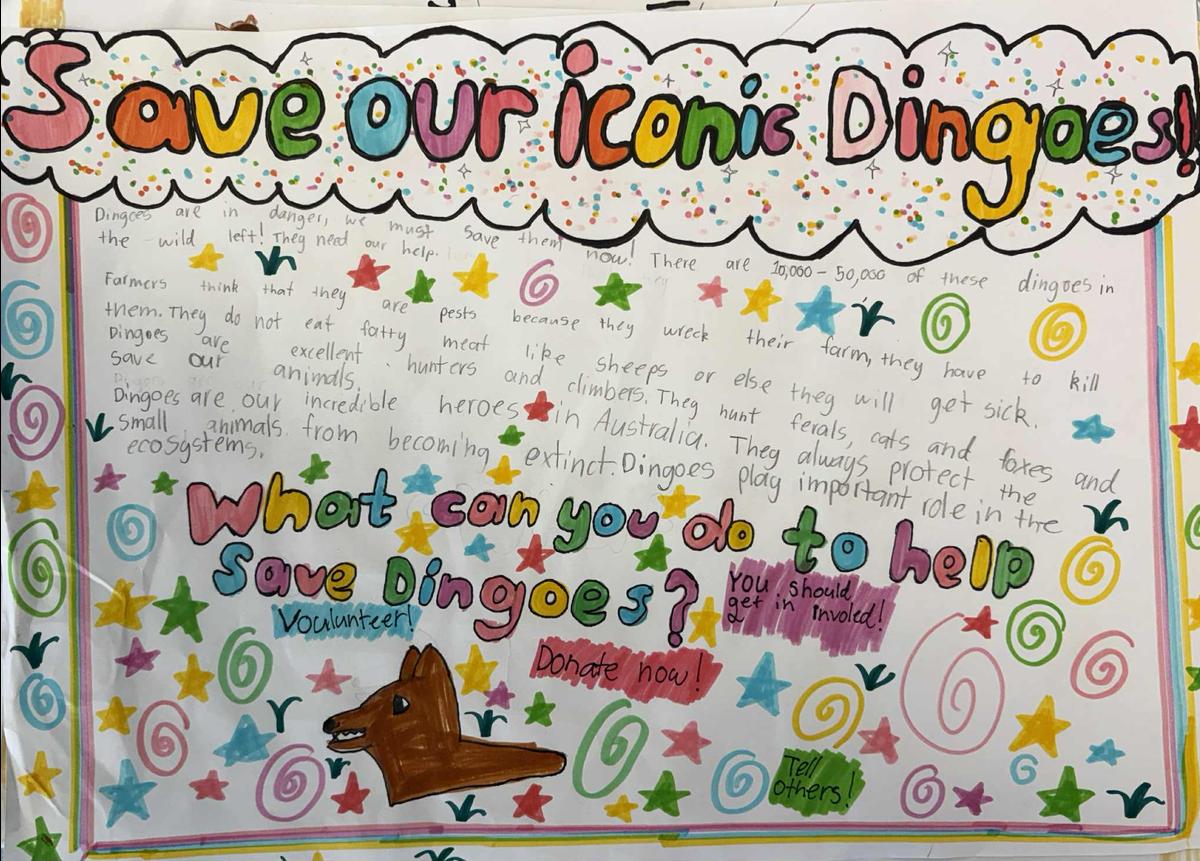 Save our iconic Dingoes!
Dingoes are in danger, we must save them now! There are 10,000 - 50,000 of these dingoes in
the wild left! They need our help.
Farmers think that they are pests because they wreck their farm, they have to kill
them. They do not eat fatty meat like sheeps or else they will get sick.
Dingoes are excellent hunters and climbers. They hunt ferals, cats and foxes and
save our animals.
Dingoes are our incredible heroes in Australia. They always protect the
small animals from becoming extinct. Dingoes play important role in the
ecosystems.
What can you do to help
save Dingoes?
You should
get in involed!
Voulunteer!
Donate now!
Tell
others!